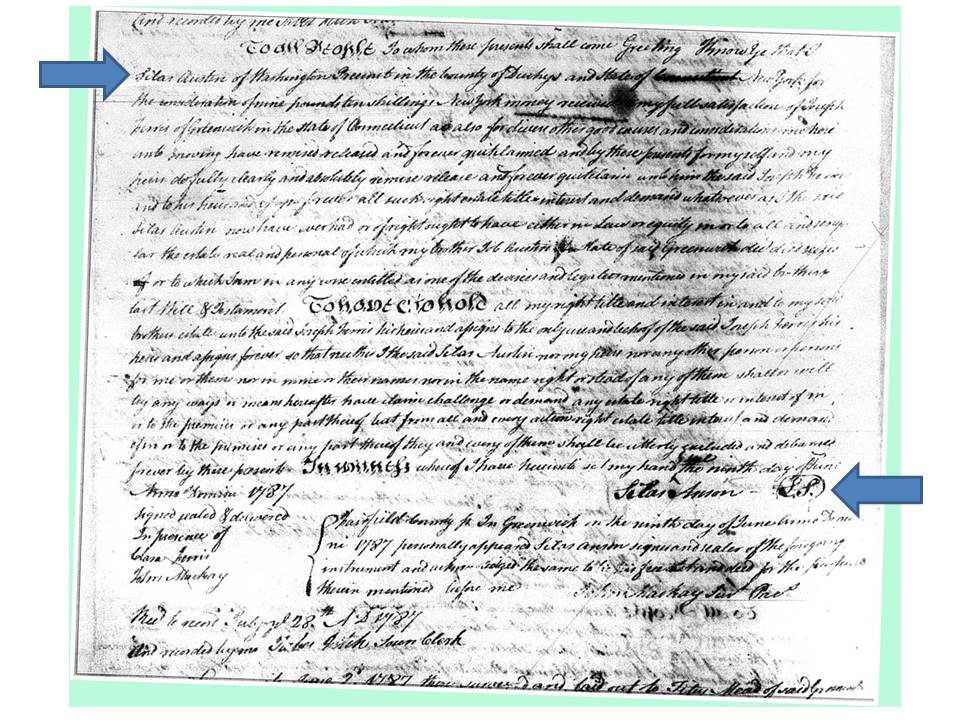 And recorded by me
To all People To whom these presents Shall come Greeting Know ye that I
Silas Austin of Washington Precinct in the County of Duchess and State of New York for
the consideration of nine pounds ten shillings New York money received to my full satisfaction of Joseph
Ferris of Greenwich in the State of Connecticut as also for divers other good causes and considerations me here
unto moving have remised released and forever quitclaimed and by these presents for myself and my
heirs do fully clearly and absolutely remise release and forever quitclaim unto him the said Joseph Ferris
and to his heirs and forever all such right estate title interest and demand whatsoever as I the said
Silas Austin now have ever had or of right ought to have either in Law or equity in or to all and singu
lar the estate real and personal of which my brother Job Austin late of said Greenwich died
or to which I am in any wise entitled as one of the devisees and legatees mentioned in my said brothers
last Will & Testament To have & to hold all my right title and interest in and to my said
brothers estate unto the said Joseph Ferris his heirs and assigns to the only use and behoof of the said Joseph Ferris his
heirs and assigns forever so that neither I the said Silas Austin nor my heirs nor any other person or persons
for me or them nor in mine or their names nor in the name right or stead of any of them shall or will
by any ways or means hereafter have claim challenge or demand any estate right title or interest of in
or to the premises or any part thereof but from all and every action right estate title interest and demand
of in or to the premises or any part thereof they and every of them shall be utterly excluded and debarred
forever by these presents In witness whereof I have hereunto set my hand the ninth day of June
Anno Domini 1787 Silas Anson L.S.
signed sealed & delivered
In presence of
Clara Ferris
John Mackay
Fairfield County In Greenwich on the ninth day of June Anno Domi
ni 1787 personally appeared Silas Anson signer and sealer of the foregoing
instrument and the same to be his free act and deed for the purposes
therein mentioned before me John Mackay Just Pac.
Recd to record July 28th A D 1787
and recorded by me Town Clerk
1787 then surveyed and laid out to Titus Mead of said Greenwich